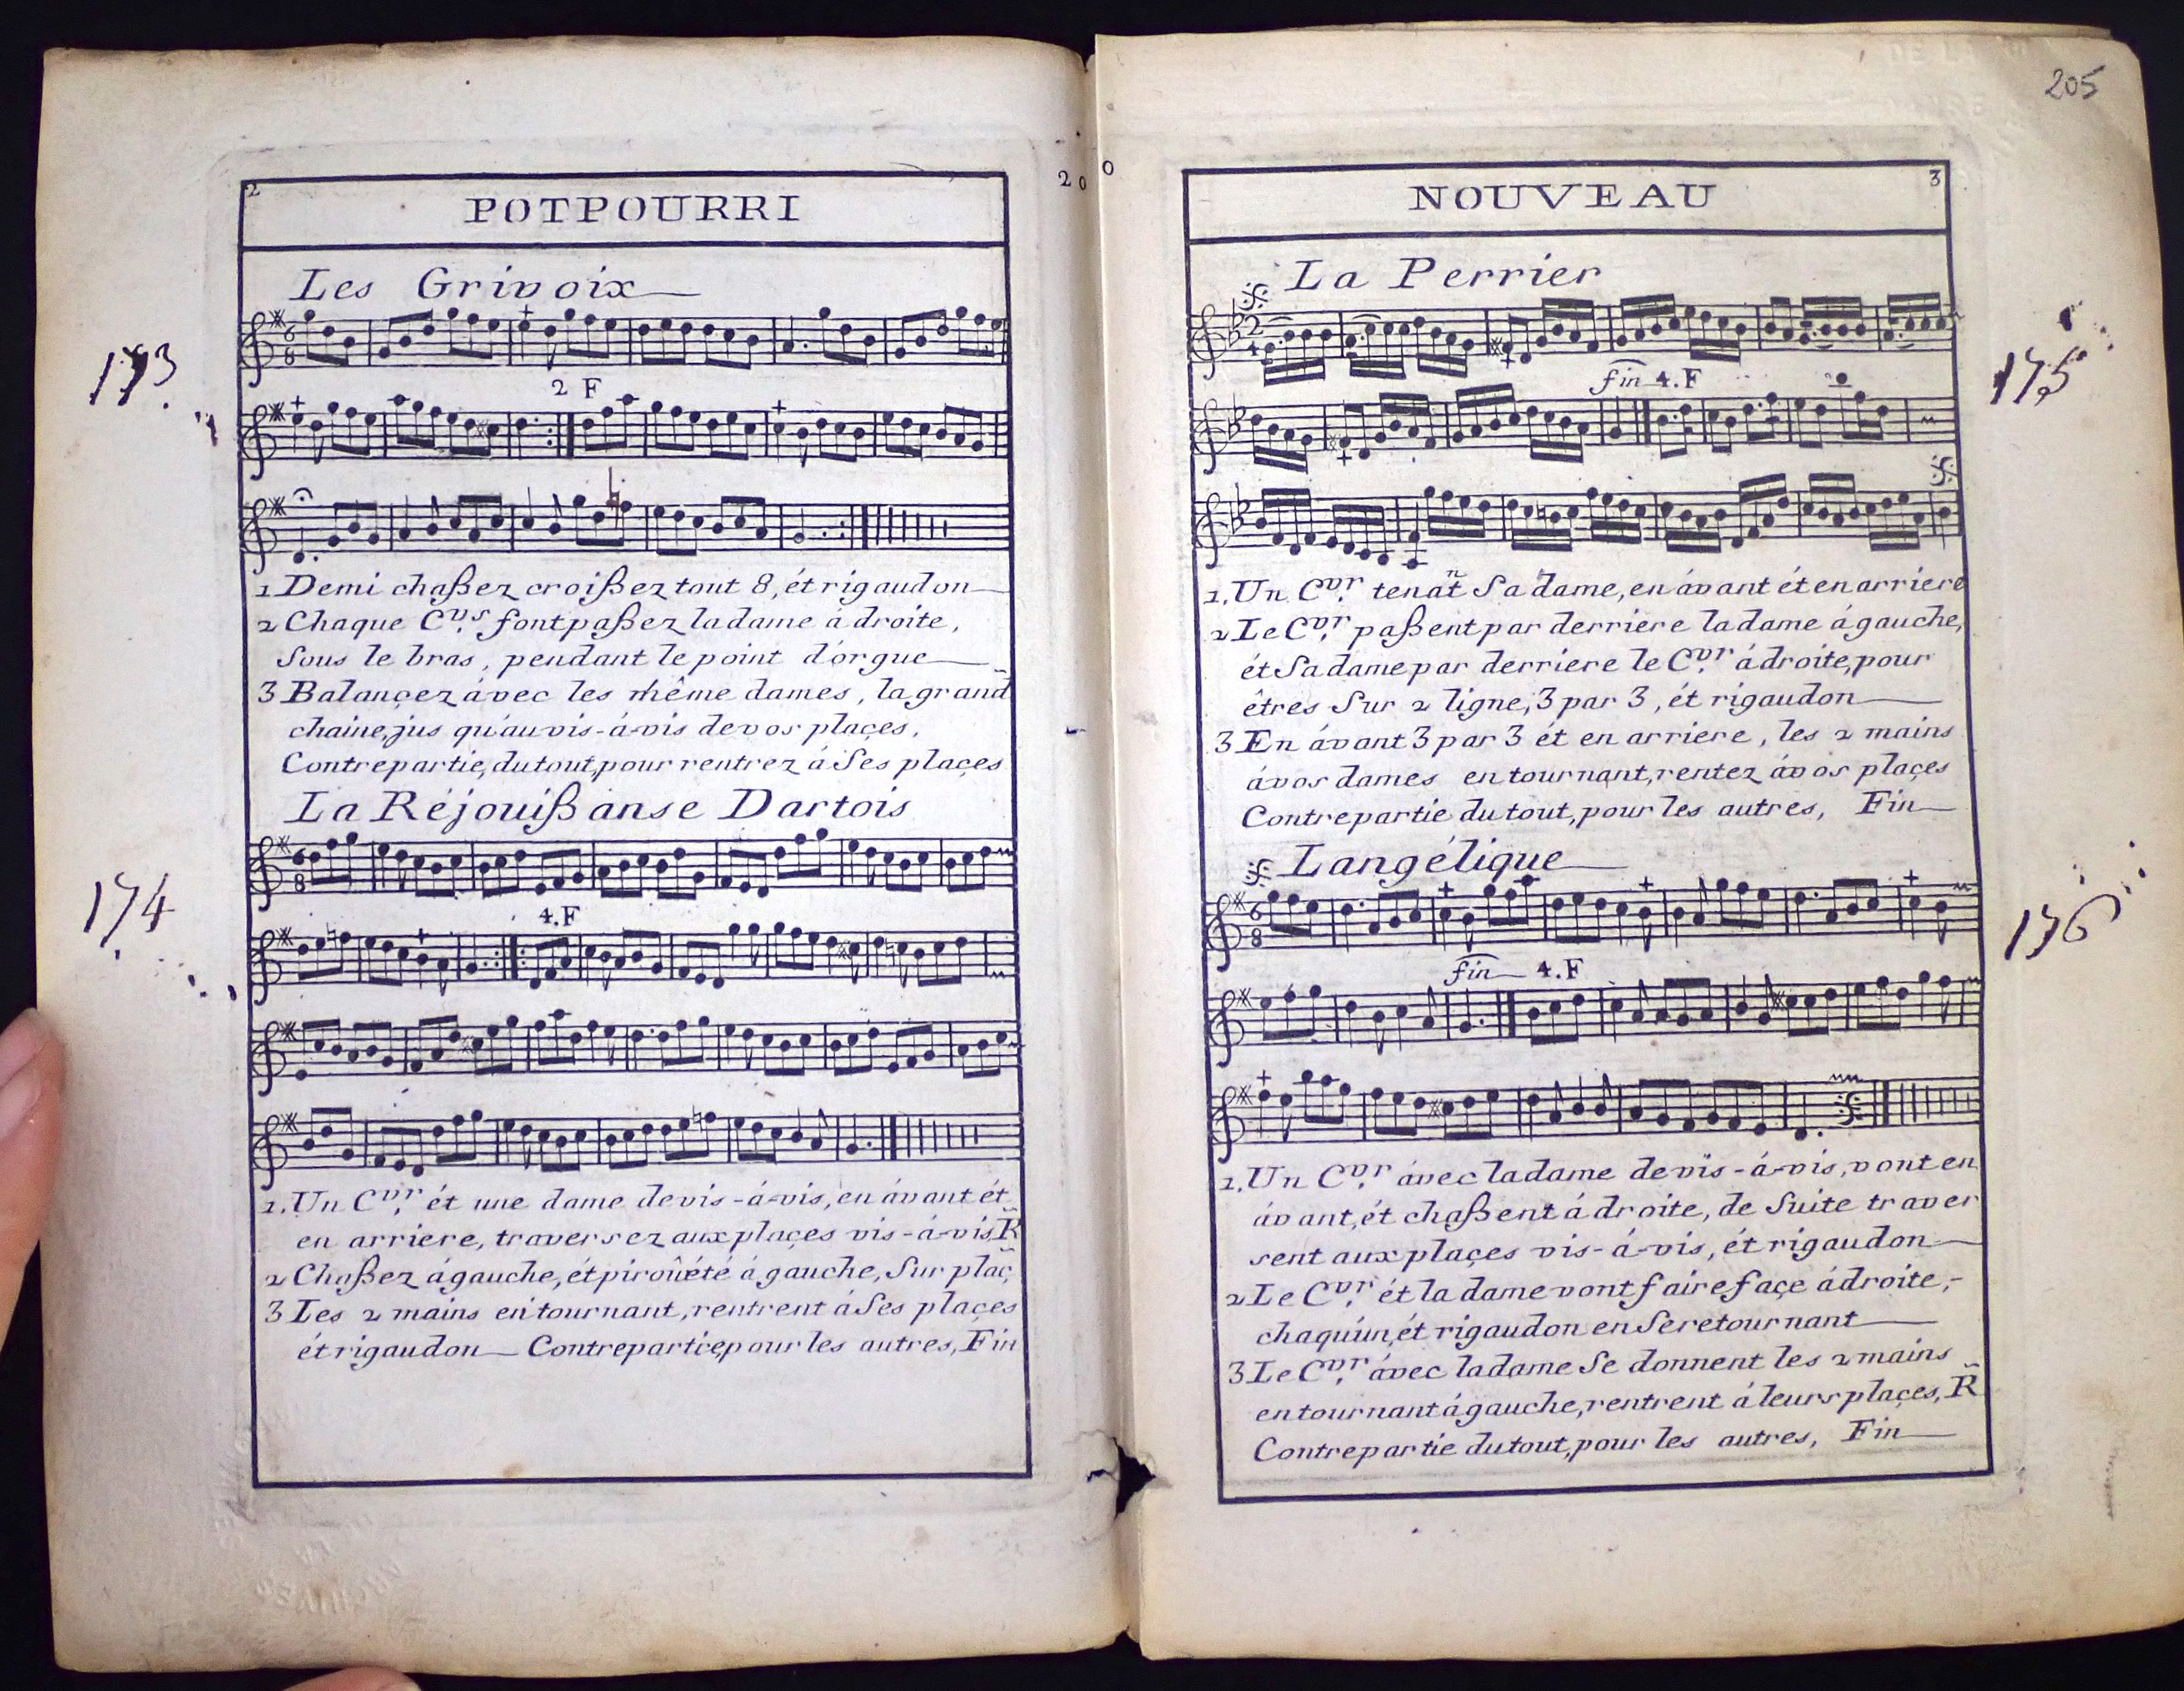 2
POTPOURRI
Les Grivoix
173
2 F
1 Demi chaßez croißez tout 8, ét rigaudon
2 Chaque Cvrs. font paßez la dame á droite,
Sous le bras, pendant le point d'orgue
3 Balançez ávec les même dames, la grand
chaine, jus qu'au vis-á-vis de vos plaçes,
Contrepartie, du tout, pour rentrez á Ses plaçes
La Réjouißanse Dartois
174
4.F
1. Un Cvr. ét une dame de vis-á-vis, en ávant ét
en arriere, traversez aux plaçes vis-á-vis, R̃
2 Chaßez ágauche, ét piroüété á gauche, Sur plaç̃
3 Les 2 mains en tournant, rentrent á Ses plaçes
ét rigaudon Contrepartie, pour les autres, Fin
200
205
3
NOUVEAU
La Perrier
175
fin 4.F
1. Un Cvr. tenãt Sa dame, en ávant ét en arriere
2 Le Cvr. paßent par derriere la dame á gauche,
ét Sa dame par derriere le Cvr. á droite, pour
êtres Sur 2 ligne, 3 par 3, ét rigaudon
3 En ávant 3 par 3 ét en arriere, les 2 mains
ávos dames en tournant, rentez ávos plaçes
Contrepartie du tout, pour les autres, Fin
Langélique
176
fin 4.F
1. Un Cvr. ávec la dame de vis-á-vis, vont en
ávant, ét chaßent á droite, de Suite traver
sent aux plaçes vis-á-vis, ét rigaudon
2 Le Cvr. ét la dame vont faire façe ádroite,-
chaqu'un, ét rigaudon en Se retournant
3 Le Cvr. ávec la dame Se donnent les 2 mains
en tournant ágauche, rentrent á leurs plaçes, R̃
Contrepartie du tout, pour les autres, Fin